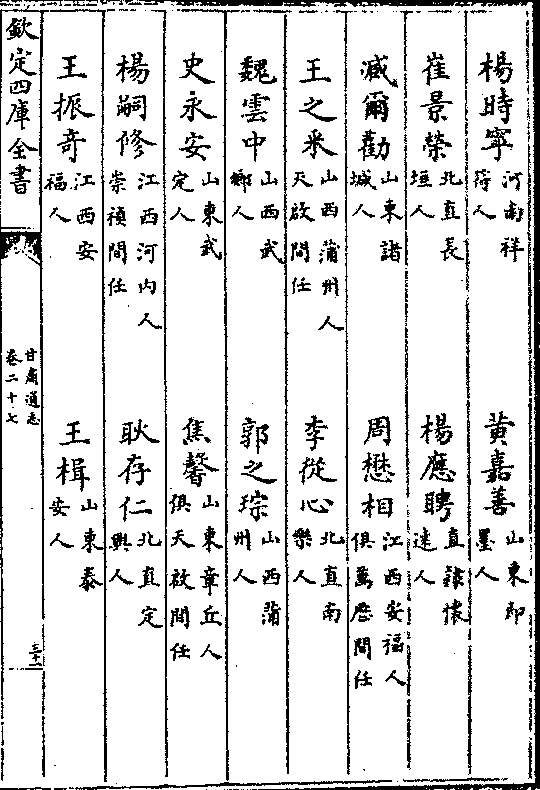 楊時寧河南祥符人　黃嘉善山東即墨人
崔景榮北直長垣人　楊應聘直隸懷逺人
臧爾勸山東諸城人　周懋相江西安福人俱萬厯間任
王之采山西蒲州人天啟間任　李從心北直南樂人
魏雲中山西武鄉人　郭之琮山西蒲州人
史永安山東武定人　焦馨山東章丘人俱天啟間任
楊嗣修江西河内人崇禎間任　耿存仁北直定興人
王振奇江西安福人　王楫山東泰安人
欽定四庫全書　甘肅通志卷二十七　三十一